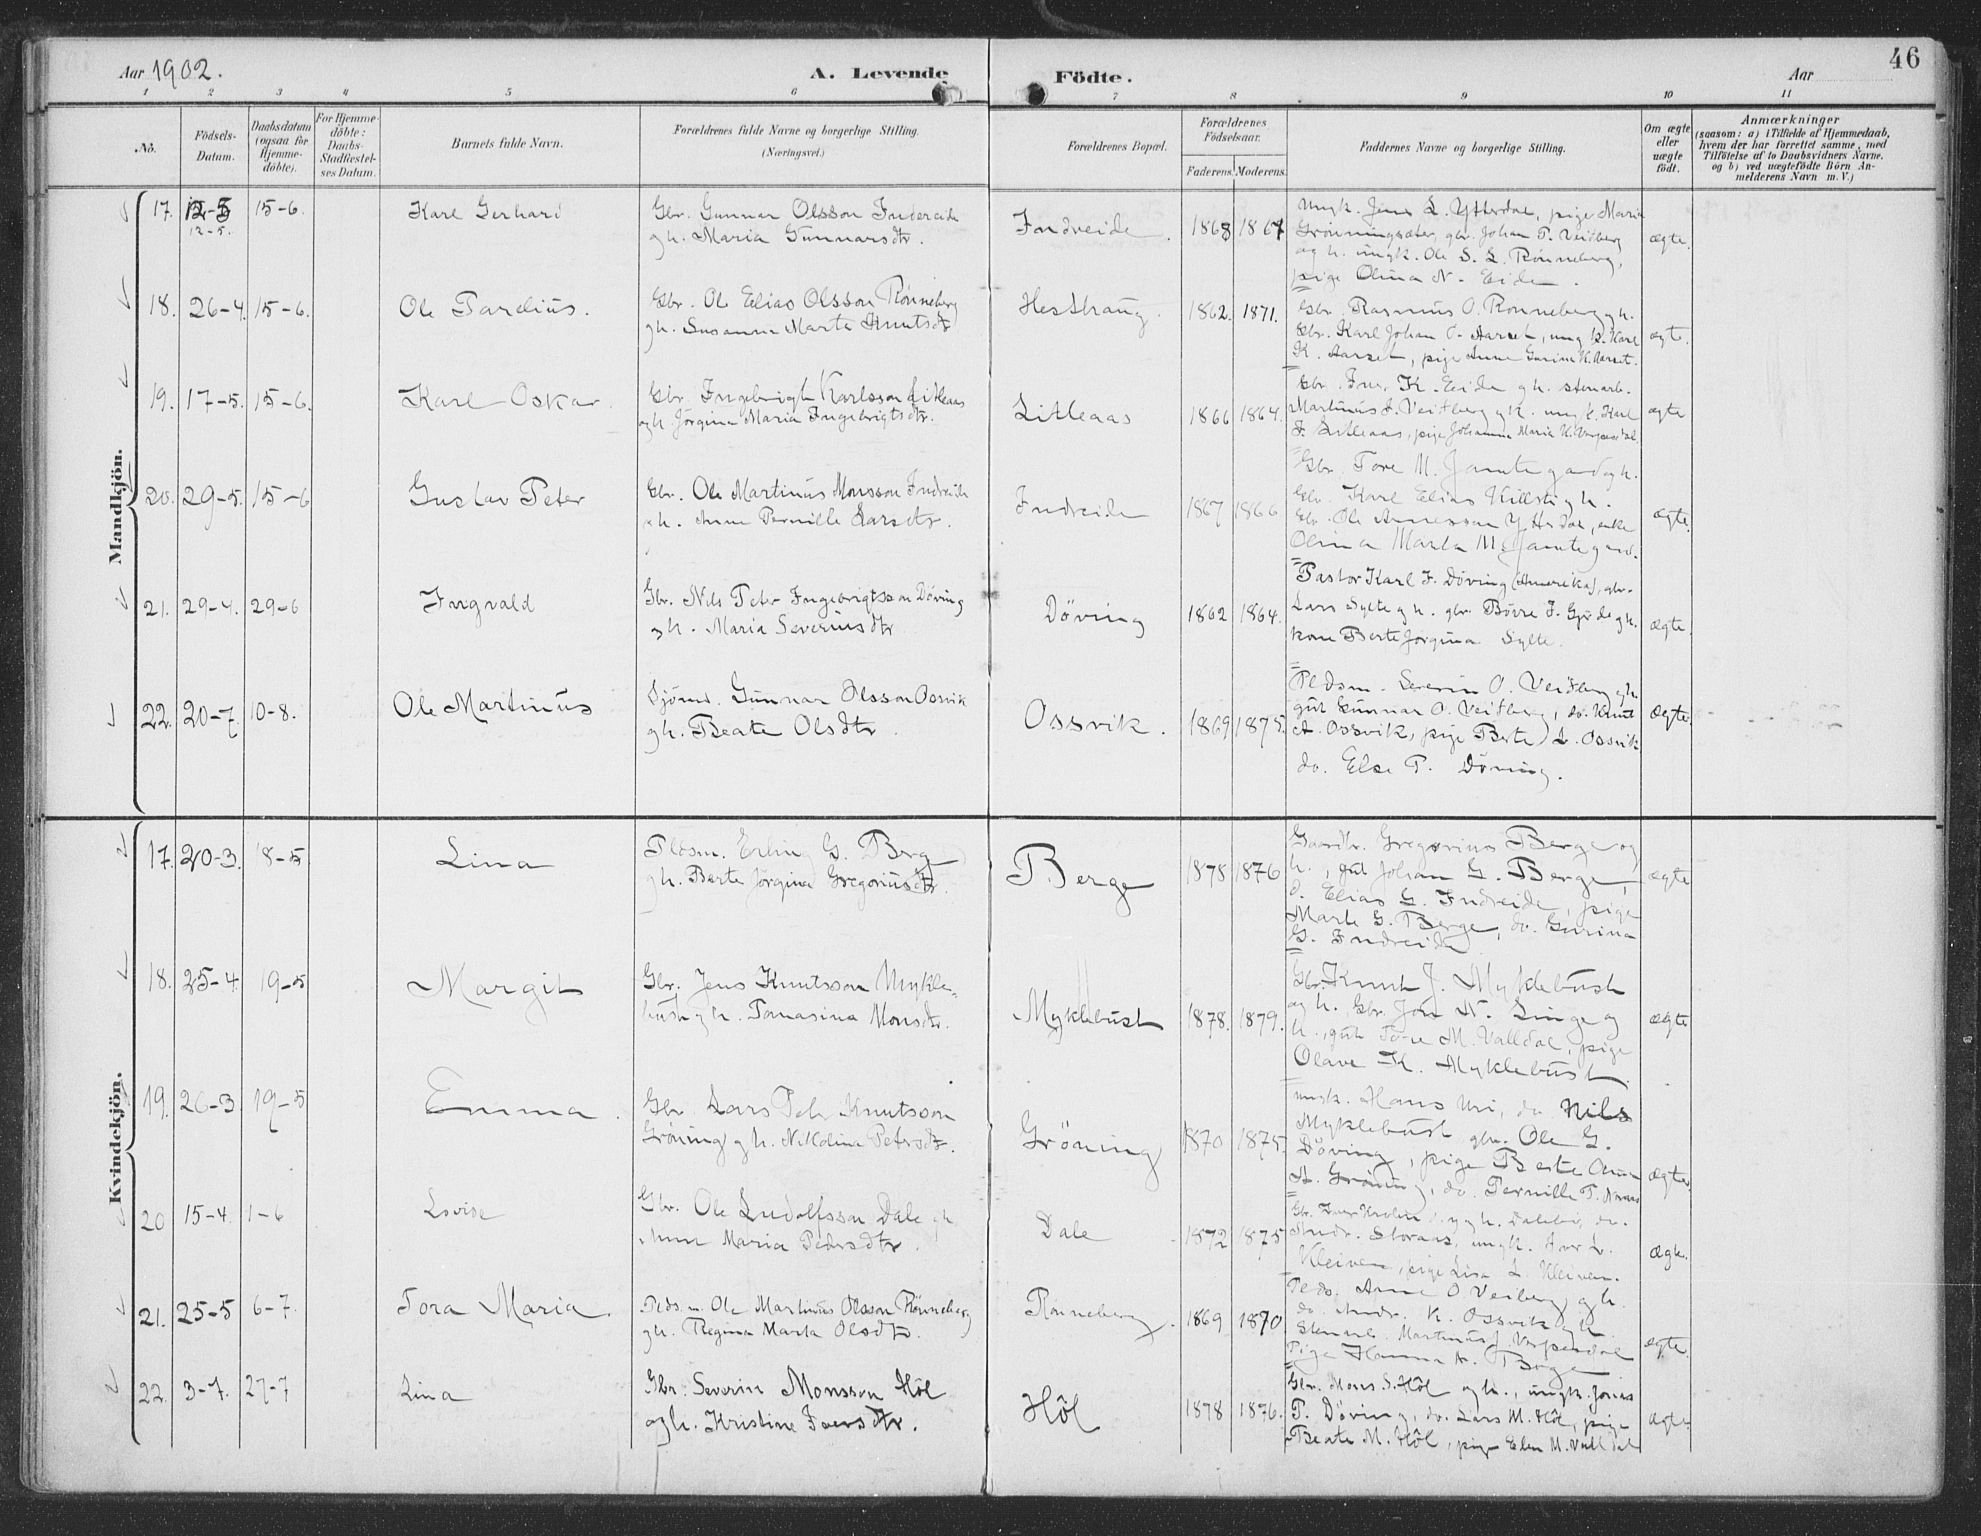 46
Aar 1902.
A. Levende Födte.
Aar
1 2 3 4 5 6 7 8 9 10 11
No.
Födsels-Datum.
Daabsdatum (ogsaa for Hjemme-döbte).
For Hjemme-döbte: Daabs-Stadfæstel-ses Datum.
Barnets fulde Navn.
Forældrenes fulde Navne og borgerlige Stilling.
(Næringsvei.)
Forældrenes Bopæl.
Forældrenes Födselsaar.
Faderens. Moderens.
Faddernes Navne og borgerlige Stilling.
Om ægte eller uægte födt.
Anmærkninger
(saasom: a) i Tilfælde af Hjemmedaab,
hvem der har forrettet samme, med
Tilföielse af to Daabsvidners Navne.
og b) ved uægtefödte Börn An-
melderens Navn m. V.)
Mandkjön.
17. 12-5 15-6. Karl Gerhard Gbr. Gunnar Olsson Indreide Indreide. 1868 1867 Ungk. Jens L. Ytterdal, pige Maria
12-5. gh. Maria Gunnarsdtr. Grönningsæter, gbr. Johan P. Veiberg ægte.
og h. ungk. Ole S. L. Rönneberg,
pige Olina N. Eide.
18. 26-4. 15-6. Ole Pardius. Gbr. Ole Elias Olsson Rönneberg Hesthaug. 1862. 1871. Gbr. Rasmus O. Rönneberg gh.
gh. Susanna Marta Knutsdtr Gbr. Karl Johan O. Aarset, ungk. Karl ægte.
K. Aarset, pige Anne Gurine K. Aarset.
19. 17-5. 15-6. Karl Oskar Gbr. Ingebrigt Karlsson Litleaas Litleaas 1866 1864. Gbr. K. Eide gh. stenarb.
ogh. Jörgina Maria Ingebrigtsdtr. Martinus J. Veiberg gh. ungk. Karl ægte
J. Litleaas, pige Johanna Maria K.
20. 29-5. 15-6 Gustav Peter Gbr. Ole Martinus Monsson Indreide Indreide 1867 1866 Gbr. Tore M. Jamtegaard gh.
gh. Anne Pernille Larsdtr. Gbr. Karl Elias Killsti gh.
Gbr. Ole Arnesson Ytterdal, enke ægte.
Olina Marta M. Jamtegard.
21. 29-4. 29-6 Ingvald Gbr. Nils Peter Ingebrigtsson Döving Döving 1862 1864. Pastor Karl J. Döving (Amerika), gbr.
gh. Maria Severinsdtr. Lars Sylte gh. gbr. Börre J. Gjörde gh. ægte.
kone Berte Jörgina Sylte.
22. 20-7. 10-8. Ole Martinus Sjömd. Gunnar Olsson Ossvik Ossvik. 1869 1875. Pldsm. Severin O. Veiberg gh.
gh. Beate Olsdtr. gut Gunnar O. Veiberg, do. Knut Ægte.
A. Ossvik, pige Berte L. Ossvik
do. Else P. Döving.
Kvindekjön.
17. 20-3. 18-5 Lina Pldsm. Erling G. Berg Berge 1878 1876 Gaardbr. Gregorius Berge og
gh. Berte Jörgina Gregoriusdtr. h., gut Johan G. Berge, ægte
d. Elias G. Indreide, pige
Marte G. Berge, do. Gurina
G. Indreide
18. 25-4. 19-5 Margit Gbr. Jens Knutsson Mykle- Myklebust 1878. 1879. Gbr. Knut J. Myklebust
bust gh. Tomasina Monsdtr. og h. Gbr. Jon N. Linge og ægte
h., gut Tore M. Valldal, pige
Olave K. Myklebust.
19. 26-3 19-5 Emma. Gbr Lars Petr Knutsson Gröning 1870 1875. Ungk. Hans Uri, do. Nils
Gröning gh. Nikoline Petersdtr. Myklebust gbr. Ole G.
Döving, pige Berte Anna Ægte.
A. Gröning, do. Pernille P.
20 15-4. 1-6 Lovise Gbr. Ole Ludolfsson Dale gh. Dale 1872 1875 Gbr. gh. Dalebö, do.
Anne Maria Pedersdtr. Andr. Storaas, ungk. Iver L. Ægte.
Kleiven, pige Lisa L. Kleiven.
21. 25-5 6-7. Tora Maria. Pldsm. Ole Martinus Olsson Rönneberg Rönneberg. 1869 1870 Plds. Arne O Veiberg gh.
gh. Regina Marta Olsdtr. do. Andr. K. Ossvik gh.
Stenarb. Martinus J. ægte.
Pige Hanna A. Berge
22. 3-7. 27-7 Lina Gbr. Severin Monsson Höl Höl 1878 1876. Gbr. Mons S. Höl og h., ungk. Jonas
ogh. Kristine Iversdtr. P. Döving, do. Lars M. Höl, pige ægte.
Beate M. Höl, pige Elen M. Valldal